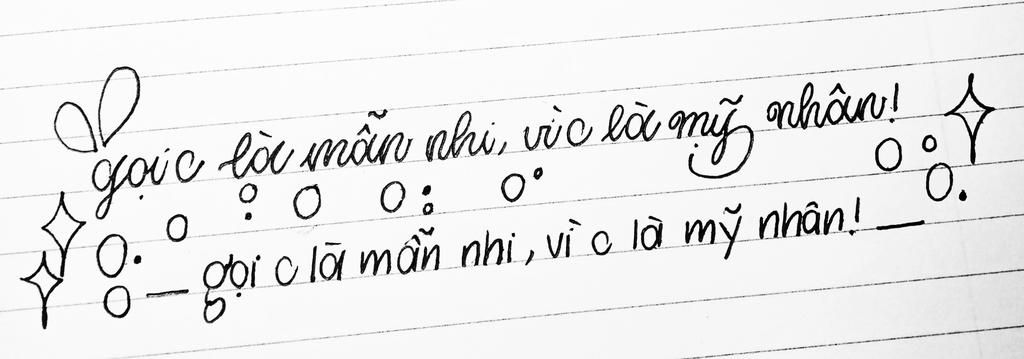 gọi c là mẫn nhi, vì c là mỹ nhân!
gọi c là mẫn nhi, vì c là mỹ nhân!